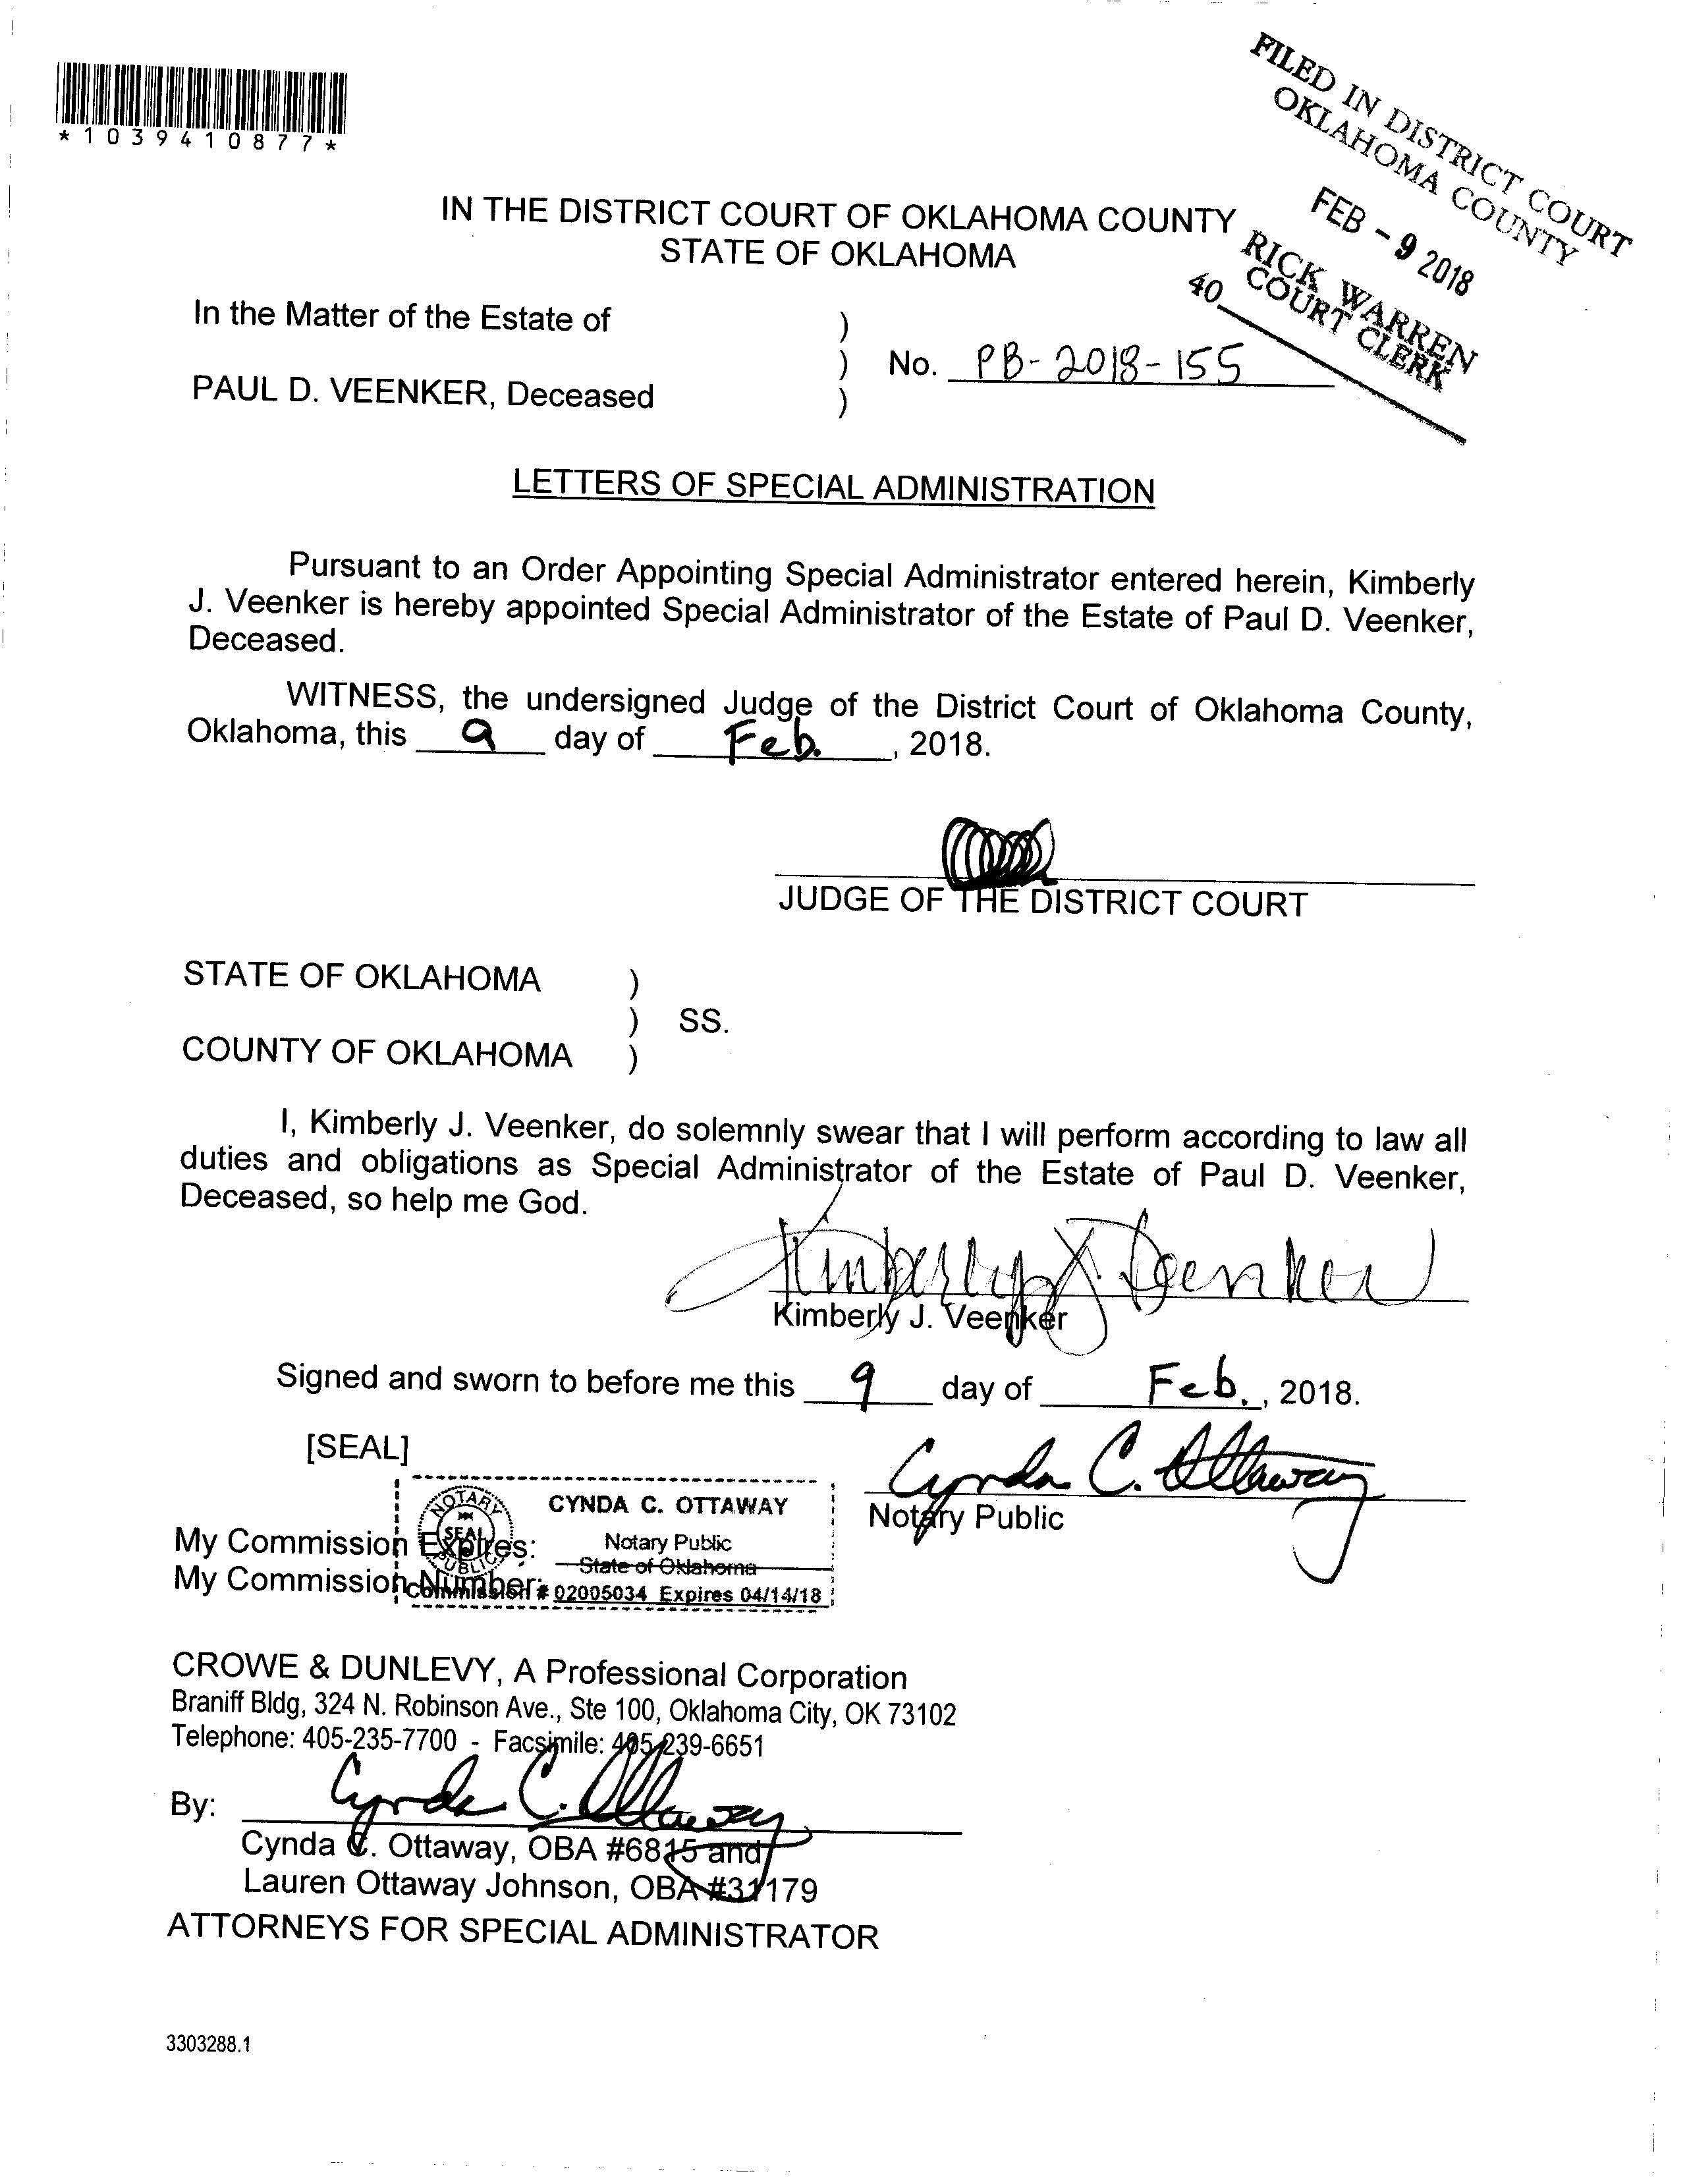 *1039410877*
FILED IN DISTRICT COURT
OKLAHOMA COUNTY
FEB - 9 2018
RICK WARREN
COURT CLERK
40
IN THE DISTRICT COURT OF OKLAHOMA COUNTY
STATE OF OKLAHOMA
In the Matter of the Estate of )
) No. PB-2018-155
PAUL D. VEENKER, Deceased )
LETTERS OF SPECIAL ADMINISTRATION
Pursuant to an Order Appointing Special Administrator entered herein, Kimberly
J. Veenker is hereby appointed Special Administrator of the Estate of Paul D. Veenker,
Deceased.
WITNESS, the undersigned Judge of the District Court of Oklahoma County,
Oklahoma, this 9 day of Feb. , 2018.
JUDGE OF THE DISTRICT COURT
STATE OF OKLAHOMA )
) SS.
COUNTY OF OKLAHOMA )
I, Kimberly J. Veenker, do solemnly swear that I will perform according to law all
duties and obligations as Special Administrator of the Estate of Paul D. Veenker,
Deceased, so help me God.
Kimberly J Veenker
Kimberly J. Veenker
Signed and sworn to before me this 9 day of Feb. , 2018.
[SEAL]
Cynda C. Ottaway
Notary Public
NOTARY SEAL PUBLIC
CYNDA C. OTTAWAY
Notary Public
State of Oklahoma
Commission # 02005034 Expires 04/14/18
My Commission Expires:
My Commission Number:
CROWE & DUNLEVY, A Professional Corporation
Braniff Bldg, 324 N. Robinson Ave., Ste 100, Oklahoma City, OK 73102
Telephone: 405-235-7700 - Facsimile: 405-239-6651
By: Cynda C. Ottaway
Cynda C. Ottaway, OBA #6815 and
Lauren Ottaway Johnson, OBA #31179
ATTORNEYS FOR SPECIAL ADMINISTRATOR
3303288.1